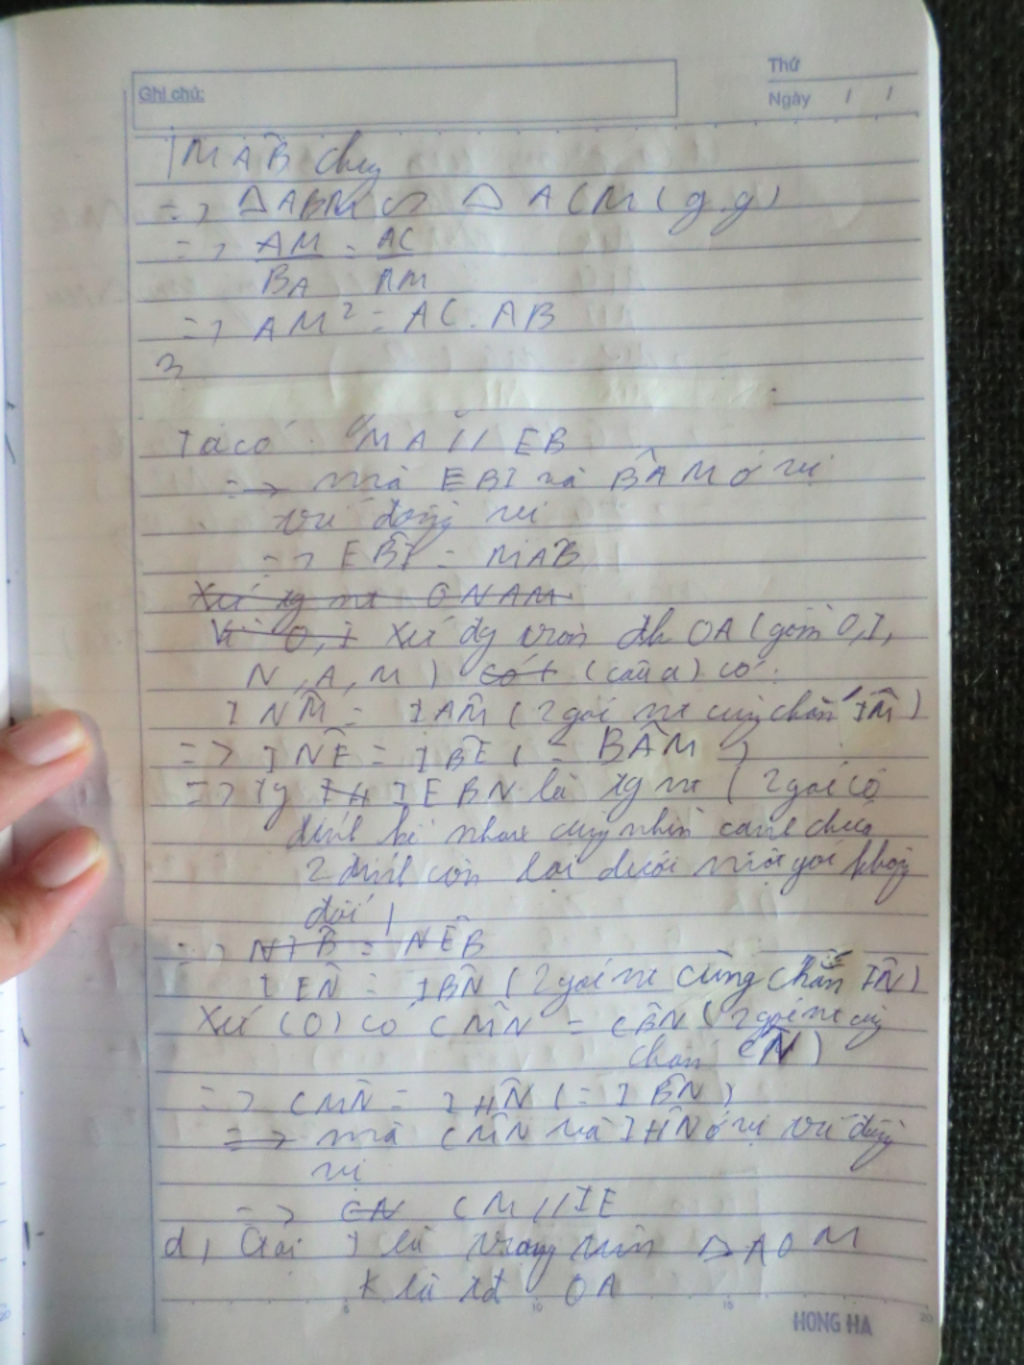 Ghi chú:
Thứ
Ngày / /
MAB chung
=> ΔABM ∽ ΔACM (g.g)
=> AM/BA = AC/AM
=> AM² = AC.AB
3
Ta có: MA // EB
=> mà EBI và BÂM ở vị
trí đồng vị
=> EB̂I = MÂB
Xét tg nt ONAM
Vì O, I Xét đg tròn đk OA (gồm O, I,
N, A, M) có (câu a) có
IN̂M = IÂM (2 góc nt cùng chắn IM)
=> IN̂E = IB̂E (= BÂM)
=> Tg IH IEBN là tg nt (2 góc có
đỉnh kề nhau cùng nhìn cạnh chứa
2 đỉnh còn lại dưới một góc không
đổi)
=> NIB̂ = NÊB
IÊN = IB̂N (2 góc nt cùng chắn IN)
Xét (O) có CM̂N = CB̂N (2 góc nt cùng
chắn CN)
=> CM̂N = IĤN (= IB̂N)
=> mà CM̂N và IĤN ở vị trí đồng
vị
=> CN CM // IE
d, Gọi J là trọng tâm ΔAOM
K là tđ OA
5 10 15 20
HONG HA